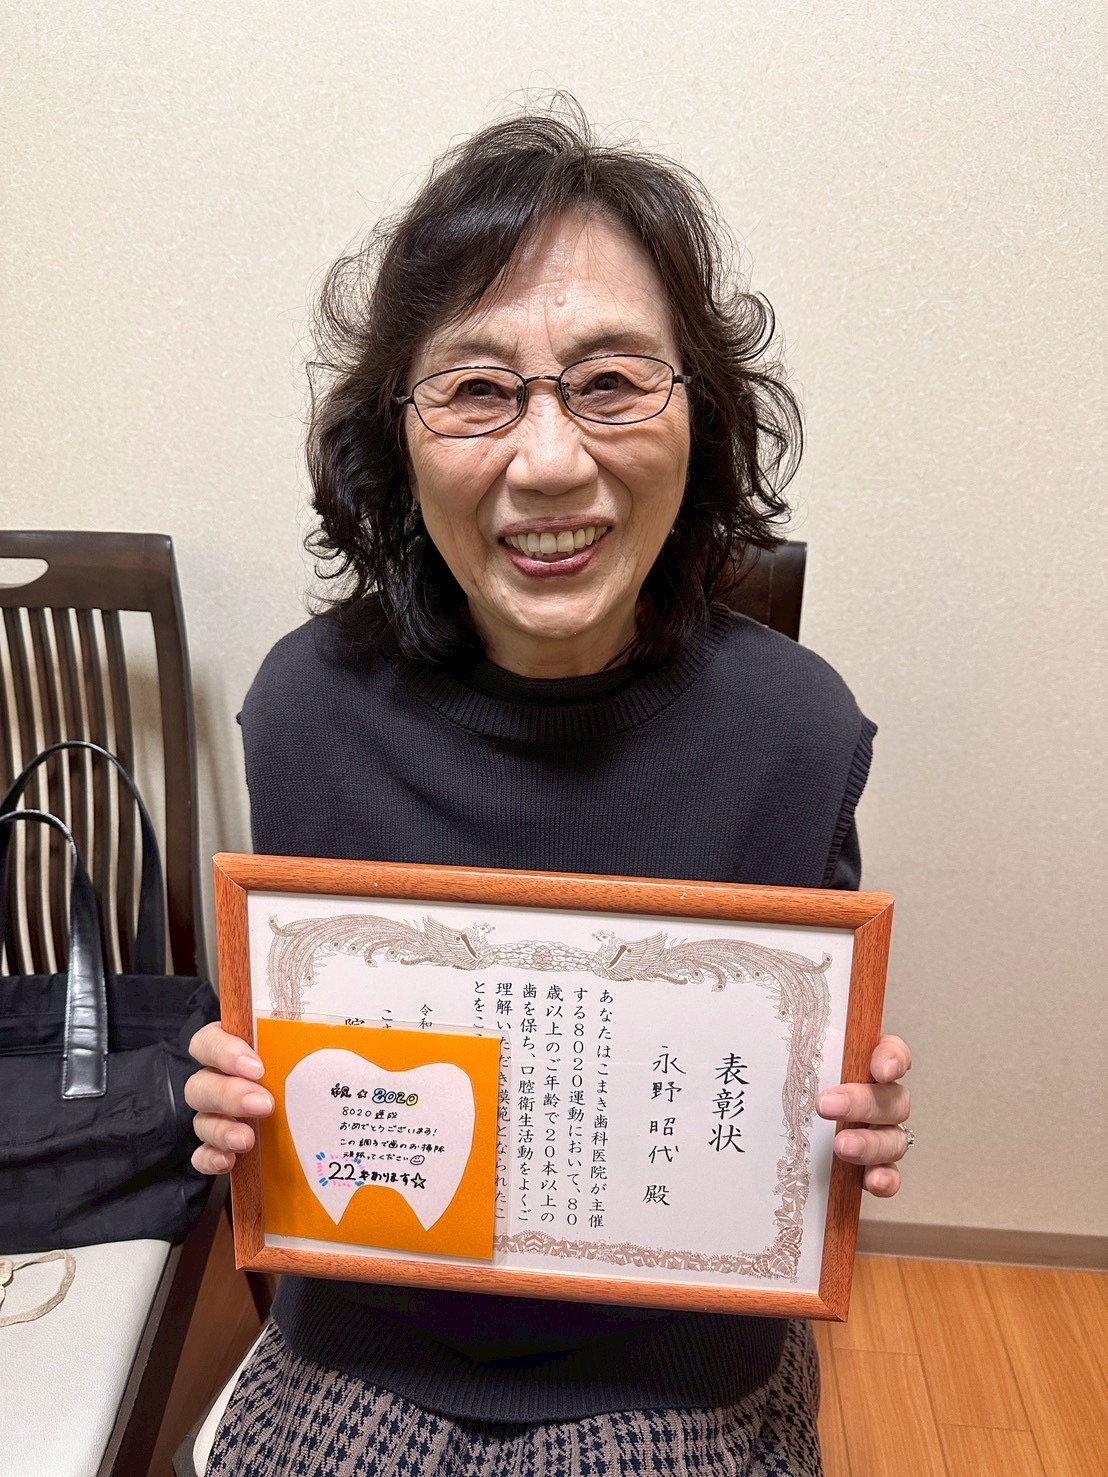 表彰状
永野 昭代 殿
あなたはこまき歯科医院が主催
する8020運動において、80
歳以上のご年齢で20本以上の
歯を保ち、口腔衛生活動をよくご
理解いただき模範となられたこ
とをここ
令和
こま
院
祝☆8020
8020達成
おめでとうございます!
この調子で歯のお掃除
頑張ってください
22本あります☆